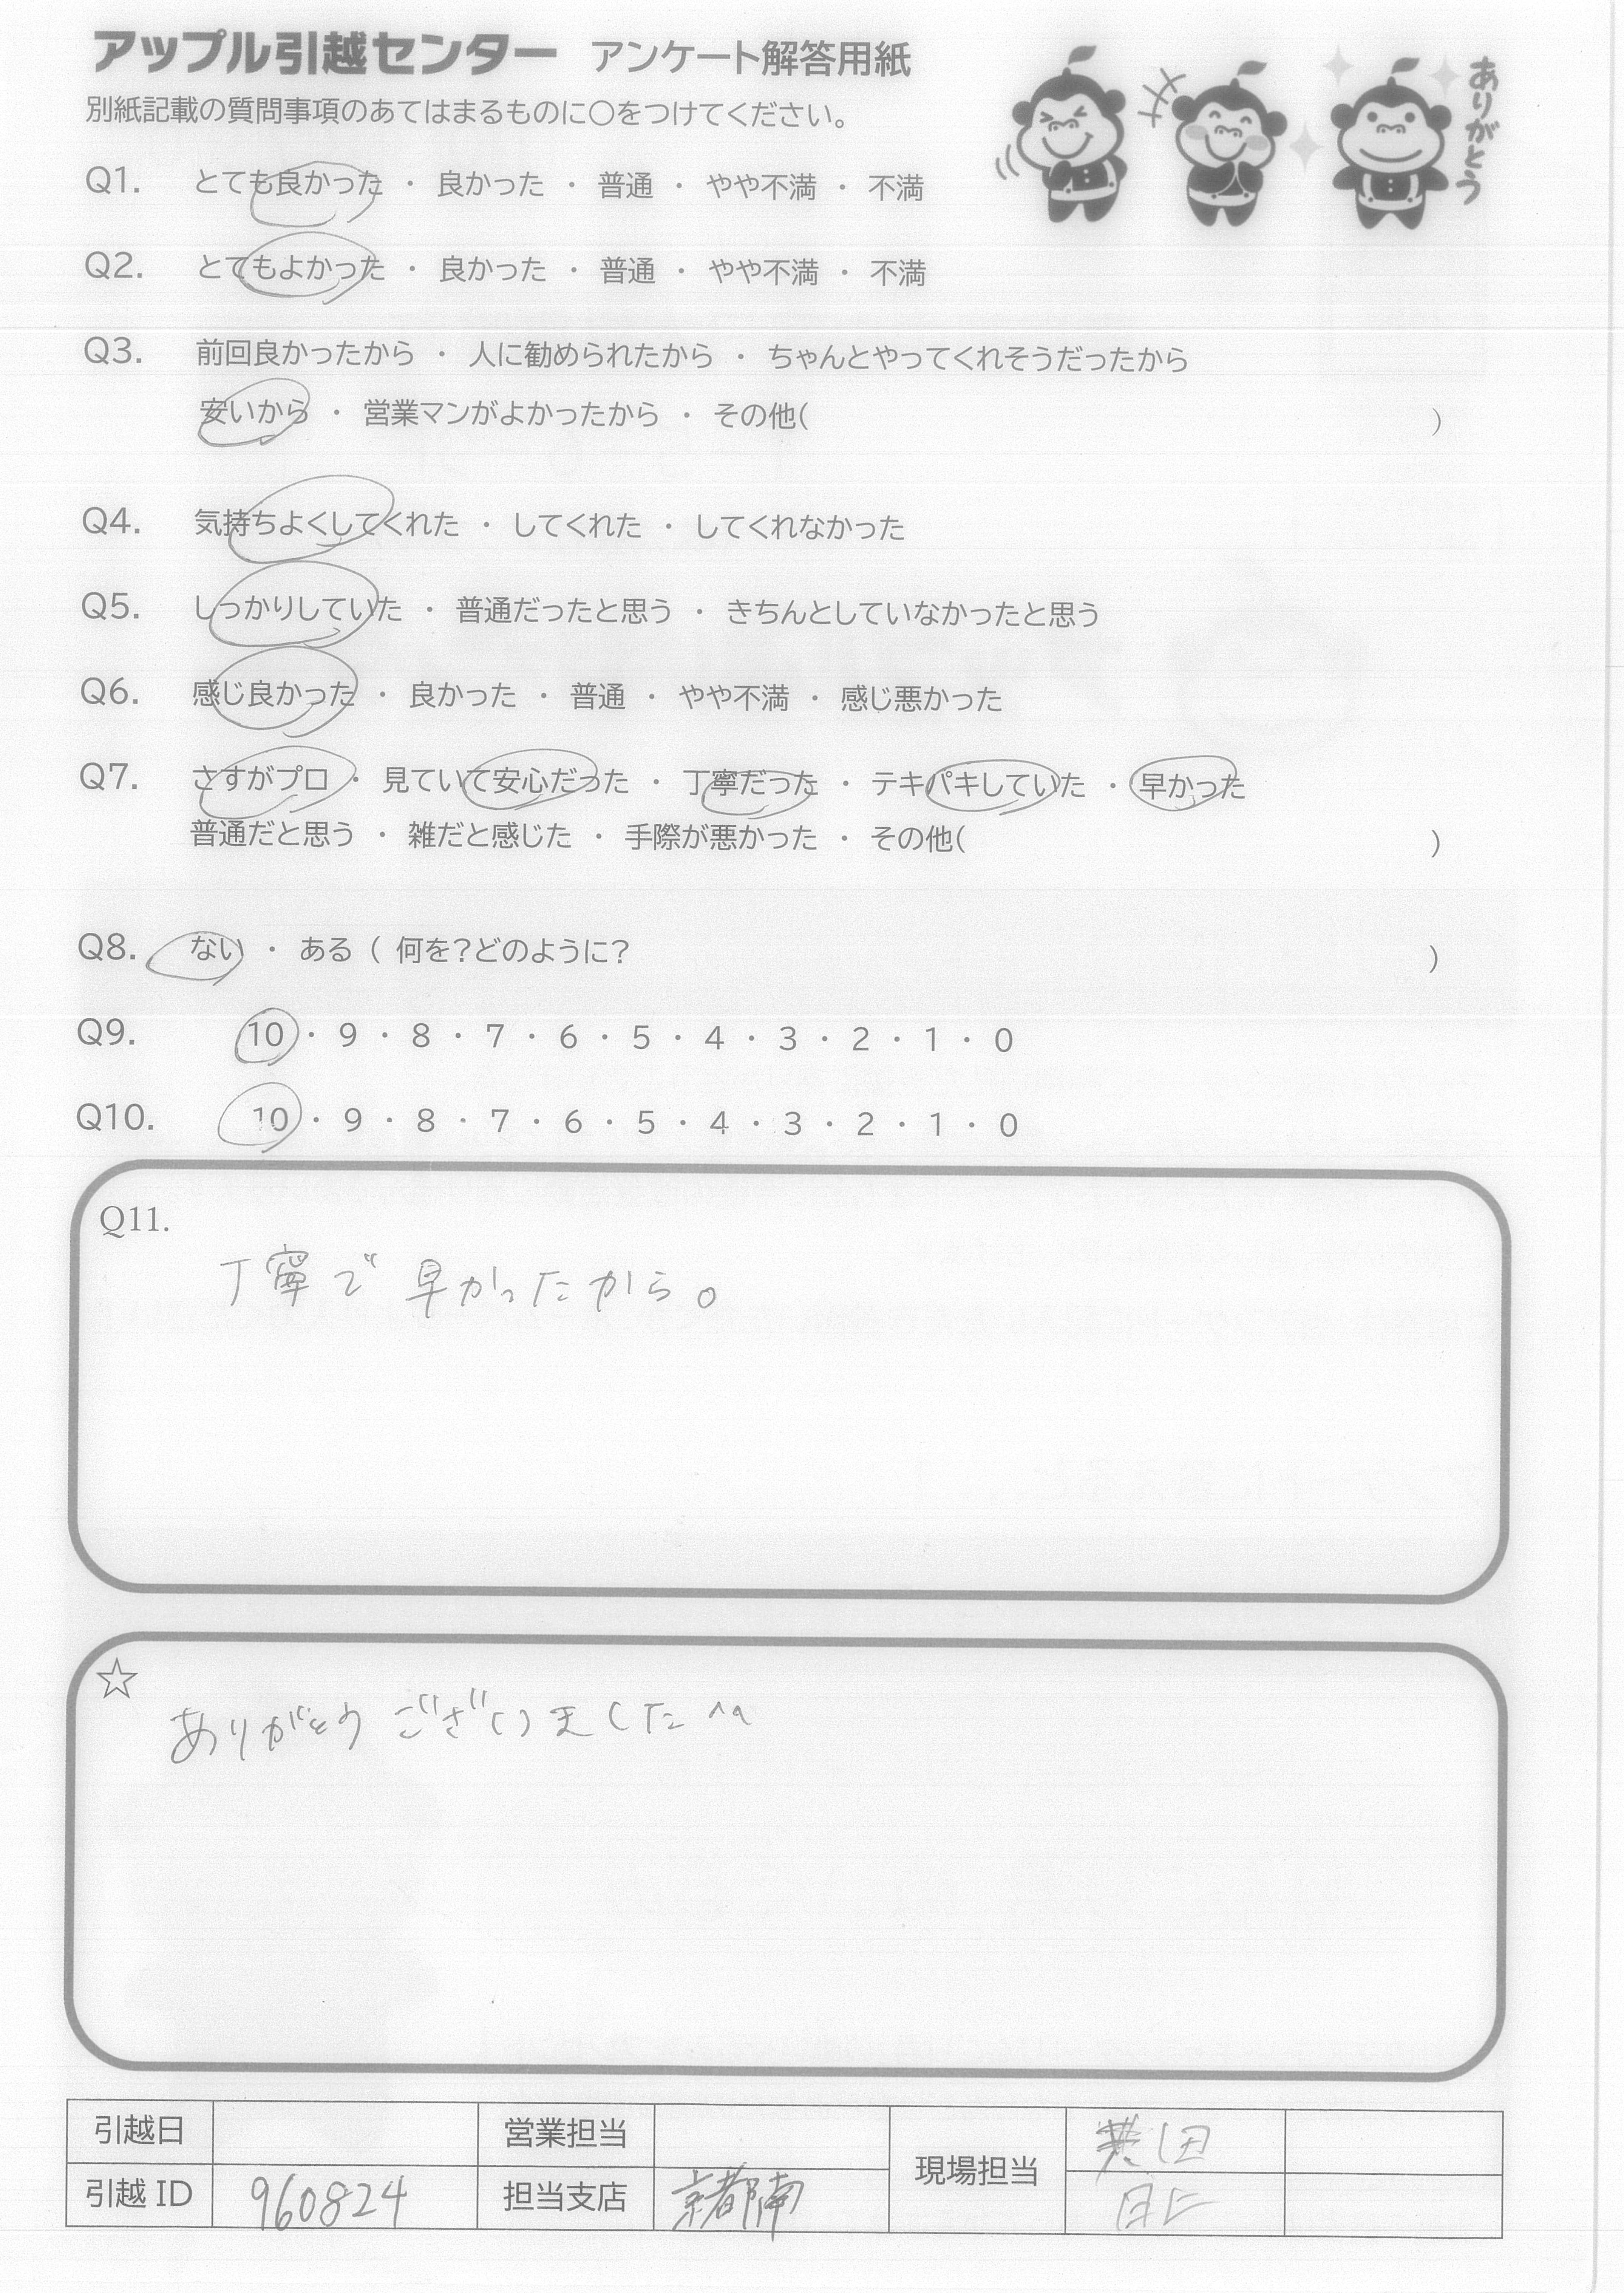 アップル引越センター アンケート解答用紙
ありがとう
別紙記載の質問事項のあてはまるものに〇をつけてください。
Q1. とても良かった ・ 良かった ・ 普通 ・ やや不満 ・ 不満
Q2. とてもよかった ・ 良かった ・ 普通 ・ やや不満 ・ 不満
Q3. 前回良かったから ・ 人に勧められたから ・ ちゃんとやってくれそうだったから
安いから ・ 営業マンがよかったから ・ その他( )
Q4. 気持ちよくしてくれた ・ してくれた ・ してくれなかった
Q5. しっかりしていた ・ 普通だったと思う ・ きちんとしていなかったと思う
Q6. 感じ良かった ・ 良かった ・ 普通 ・ やや不満 ・ 感じ悪かった
Q7. さすがプロ ・ 見ていて安心だった ・ 丁寧だった ・ テキパキしていた ・ 早かった
普通だと思う ・ 雑だと感じた ・ 手際が悪かった ・ その他( )
Q8. ない ・ ある ( 何を?どのように? )
Q9. 10 ・ 9 ・ 8 ・ 7 ・ 6 ・ 5 ・ 4 ・ 3 ・ 2 ・ 1 ・ 0
Q10. 10 ・ 9 ・ 8 ・ 7 ・ 6 ・ 5 ・ 4 ・ 3 ・ 2 ・ 1 ・ 0
Q11.
丁寧で 早かったから。
☆
ありがとう ございました ^^
引越日 営業担当 現場担当
引越 ID 960824 担当支店 京都南